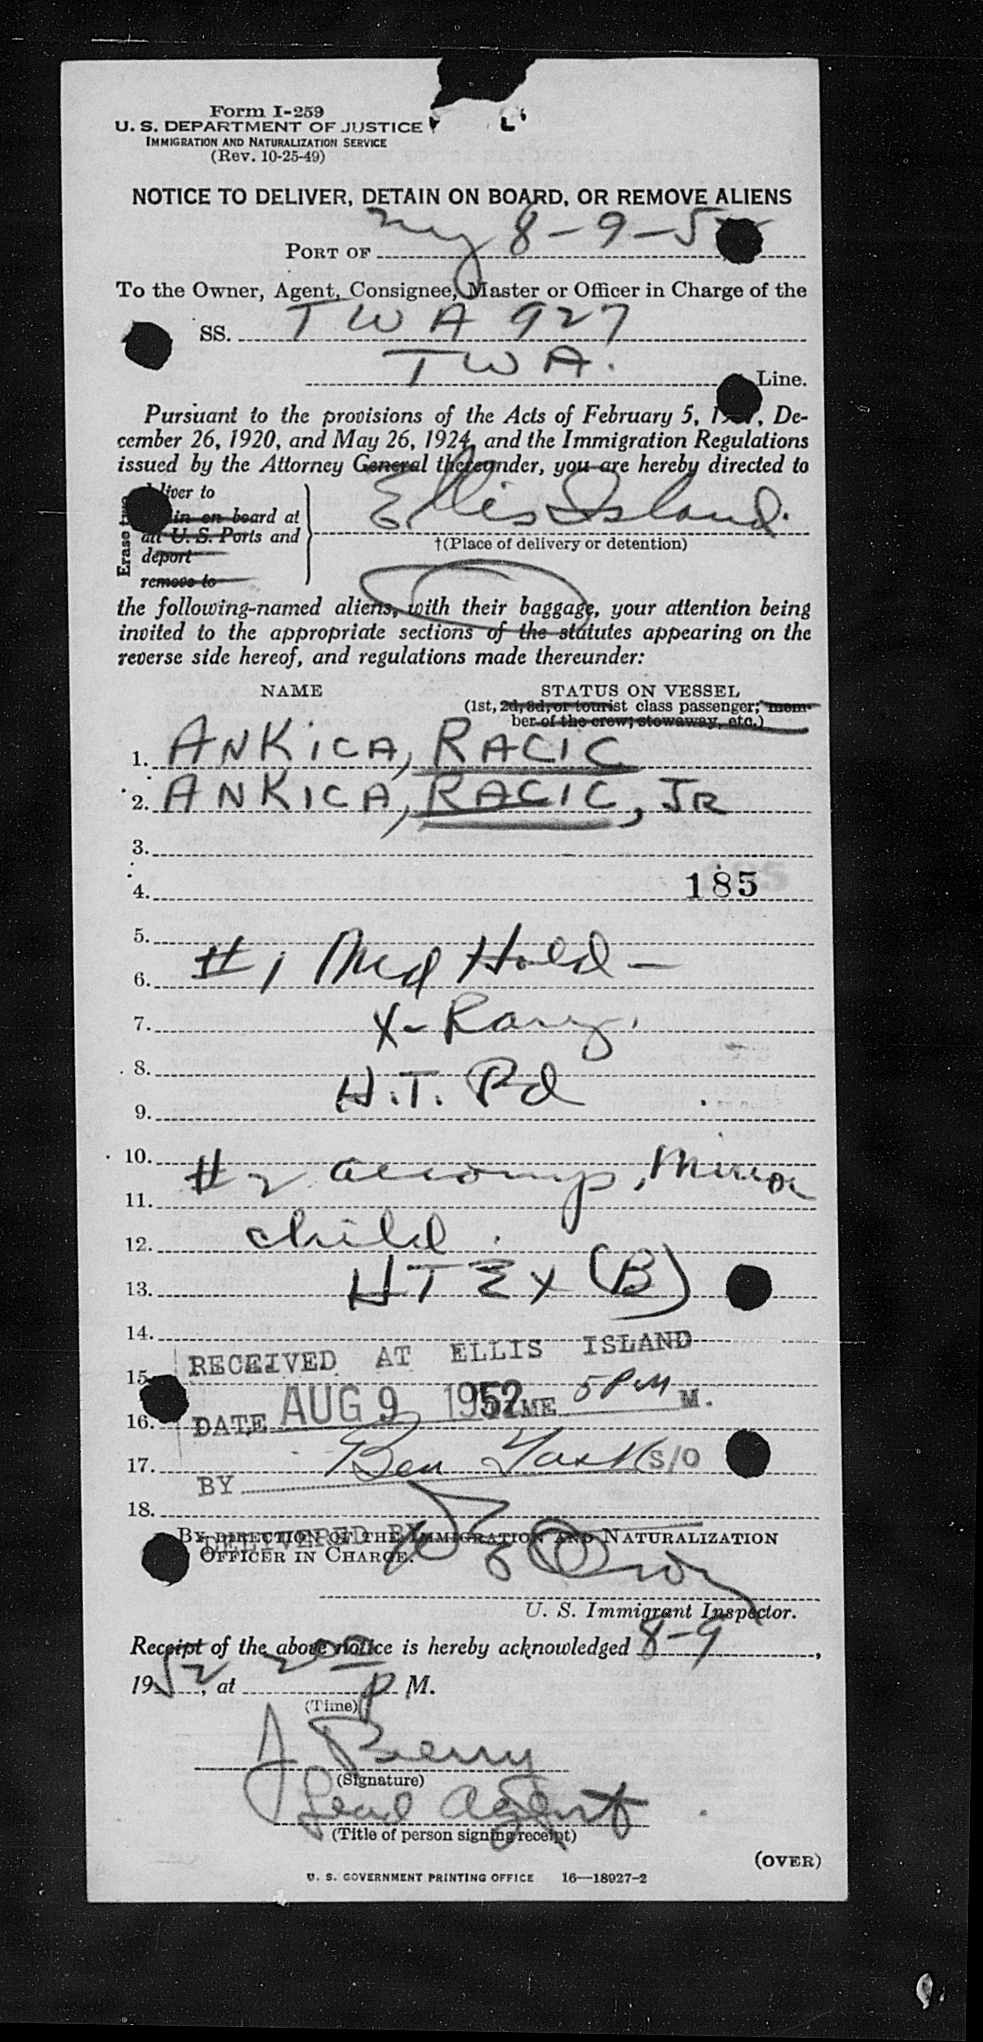 Form I-259
U. S. DEPARTMENT OF JUSTICE
IMMIGRATION AND NATURALIZATION SERVICE
(Rev. 10-25-49)
NOTICE TO DELIVER, DETAIN ON BOARD, OR REMOVE ALIENS
PORT OF ny 8-9-5
To the Owner, Agent, Consignee, Master or Officer in Charge of the
SS. TWA 927
TWA. Line.
Pursuant to the provisions of the Acts of February 5, De-
cember 26, 1920, and May 26, 1924, and the Immigration Regulations
issued by the Attorney General thereunder, you are hereby directed to
liver to
in on board at Ellis Island.
all U. S. Ports and
†(Place of delivery or detention)
deport
remove to
Erase
the following-named aliens, with their baggage, your attention being
invited to the appropriate sections of the statutes appearing on the
reverse side hereof, and regulations made thereunder:
NAME STATUS ON VESSEL
(1st, 2d, 3d, or tourist class passenger; mem-
ber of the crew; stowaway, etc.)
1. ANKICA, RACIC
2. ANKICA, RACIC, JR
3.
4. 185
5.
#1 Med Hold -
6.
7. X-Ray.
8.
H.T. Pd
9.
10.
#2 accomp, Minor
11.
12. child.
13. HT Ex (B)
14.
RECEIVED AT ELLIS ISLAND
15.
16. DATE AUG 9 1952 TIME 5 PM M.
17. BY Ben S/O
18.
DELIVERED BY
BY DIRECTION OF THE IMMIGRATION AND NATURALIZATION
OFFICER IN CHARGE.
U. S. Immigrant Inspector.
Receipt of the above notice is hereby acknowledged 8-9,
1952, at 200 P M.
(Time)
J Berry
(Signature)
Lead Agent
(Title of person signing receipt)
(OVER)
U. S. GOVERNMENT PRINTING OFFICE 16—18927-2